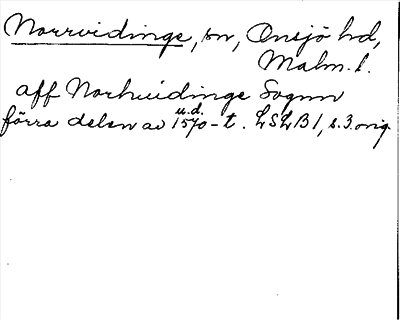 Norrvidinge, sn, Onsjö hd,
Malm. l.
aff Norhuidinge Sognn
u.d.
förra delen av 1570-t. LSLB 1, s. 3. orig.